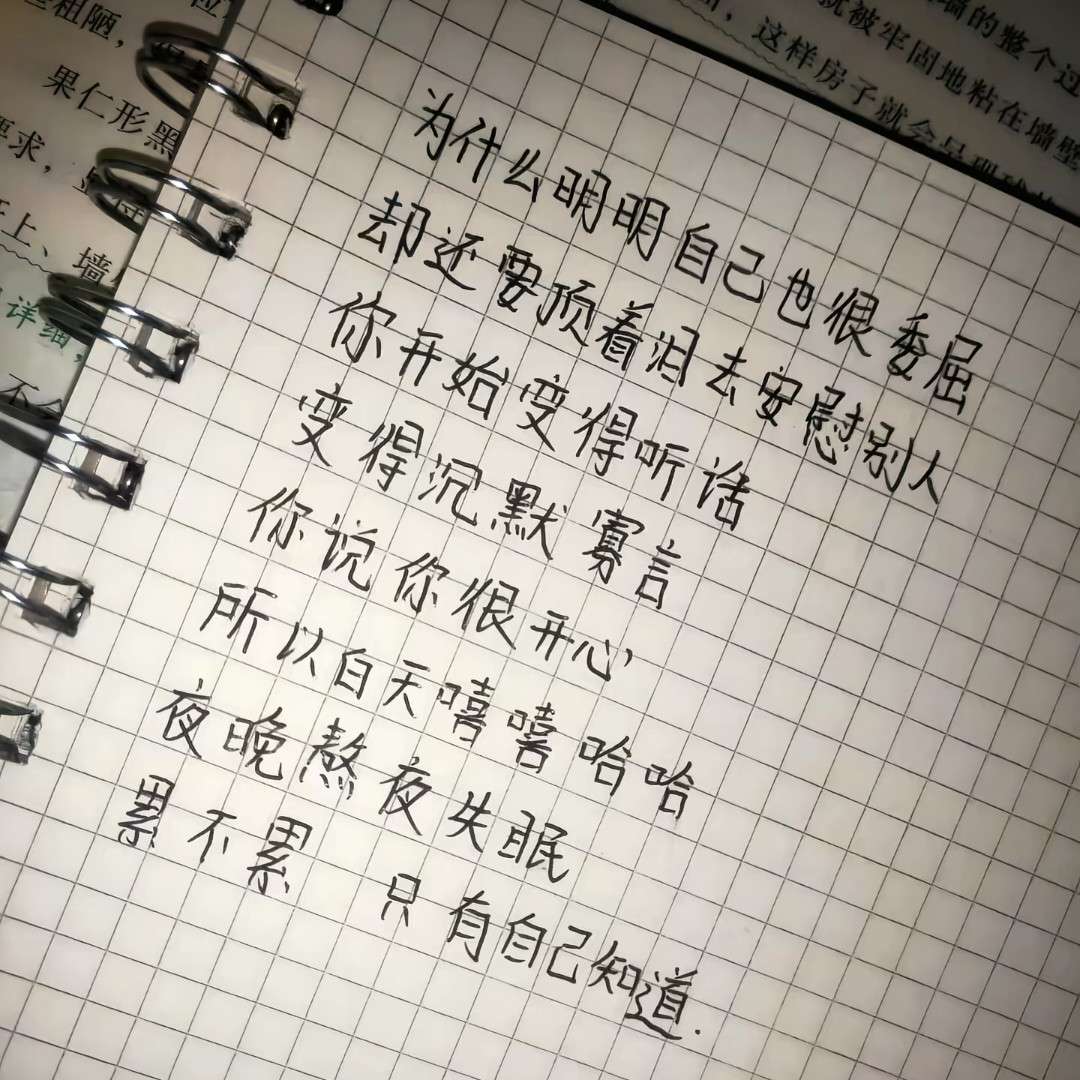 为什么明明自己也很委屈
却还要顶着泪去安慰别人
你开始变得听话
变得沉默寡言
你说你很开心，
所以白天嘻嘻哈哈
夜晚熬夜失眠
累不累 只有自己知道.
墙的整个过
就被牢固地粘在墙壁
，这样房子就会呈现
粗陋，
果仁形黑
要求，
上、墙
详细，